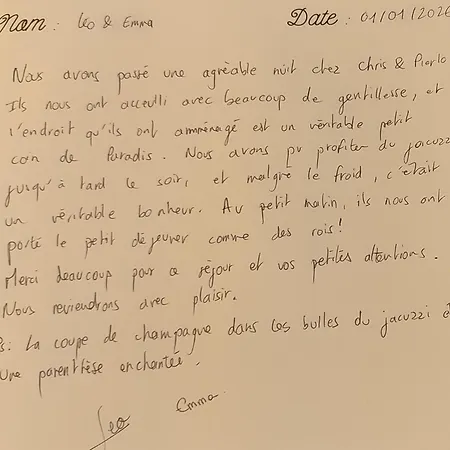 Nom : Leo & Emma Date : 01/01/2026
Nous avons passé une agréable nuit chez Chris & Pierlo
Ils nous ont acceuilli avec beaucoup de gentillesse, et
l'endroit qu'ils ont amménagé est un véritable petit
coin de Paradis. Nous avons pu profiter du jacuzzi
jusqu'à tard le soir, et malgré le froid, c'était
un véritable bonheur. Au petit matin, ils nous ont
porté le petit déjeuner comme des rois!
Merci beaucoup pour ce séjour et vos petites attentions.
Nous reviendrons avec plaisir.
s: La coupe de champagne dans les bulles du jacuzzi é
une parenthèse enchantée.
Leo Emma